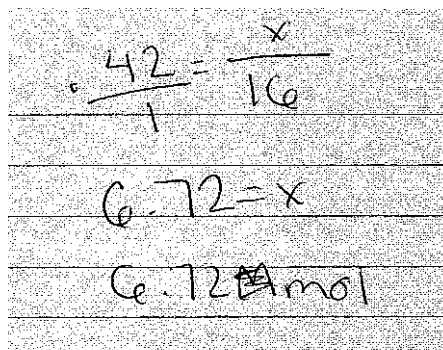 .42/1 = x/16
6.72 = x
6.72 mol